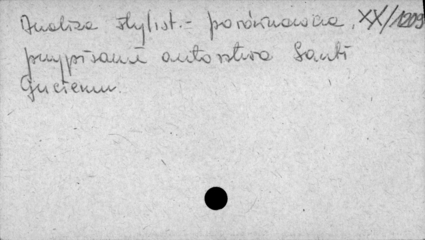 Analiza styl/ist.- porównawcza, XX/1009
przypisanie autorstwa Santi
Gucciemu.